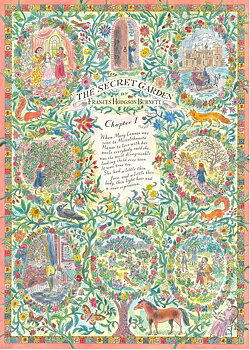 THE SECRET GARDEN
BY
FRANCES HODGSON BURNETT
Chapter I
When Mary Lennox was
sent to Misselthwaite
Manor to live with her
uncle everybody said she
was the most disagreeable-
looking child ever seen.
It was true, too.
She had a little thin
face and a little thin
body, thin light hair and
a sour expression.